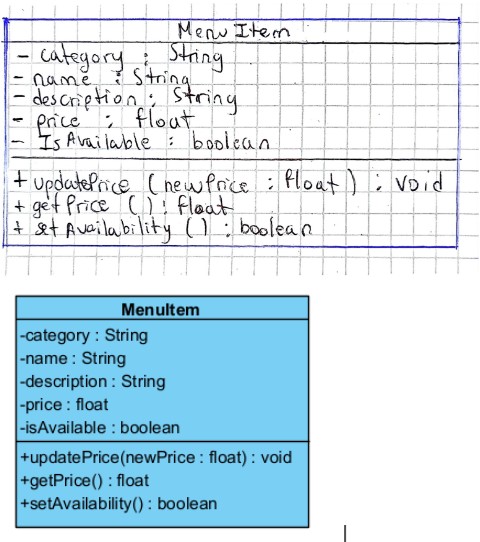 Menu Item
- category : String
- name : String
- description : String
- price : float
- IsAvailable : boolean
+ updatePrice (newPrice : float) : void
+ getPrice () : float
+ setAvailability () : boolean
MenuItem
-category : String
-name : String
-description : String
-price : float
-isAvailable : boolean
+updatePrice(newPrice : float) : void
+getPrice() : float
+setAvailability() : boolean